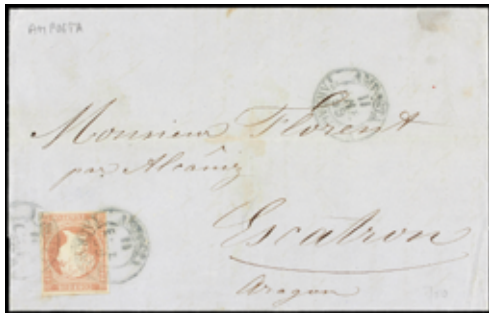 AMPOSTA
AMPOSTA
11
Monsieur Florent
par Alcañiz
Escatron
Aragon